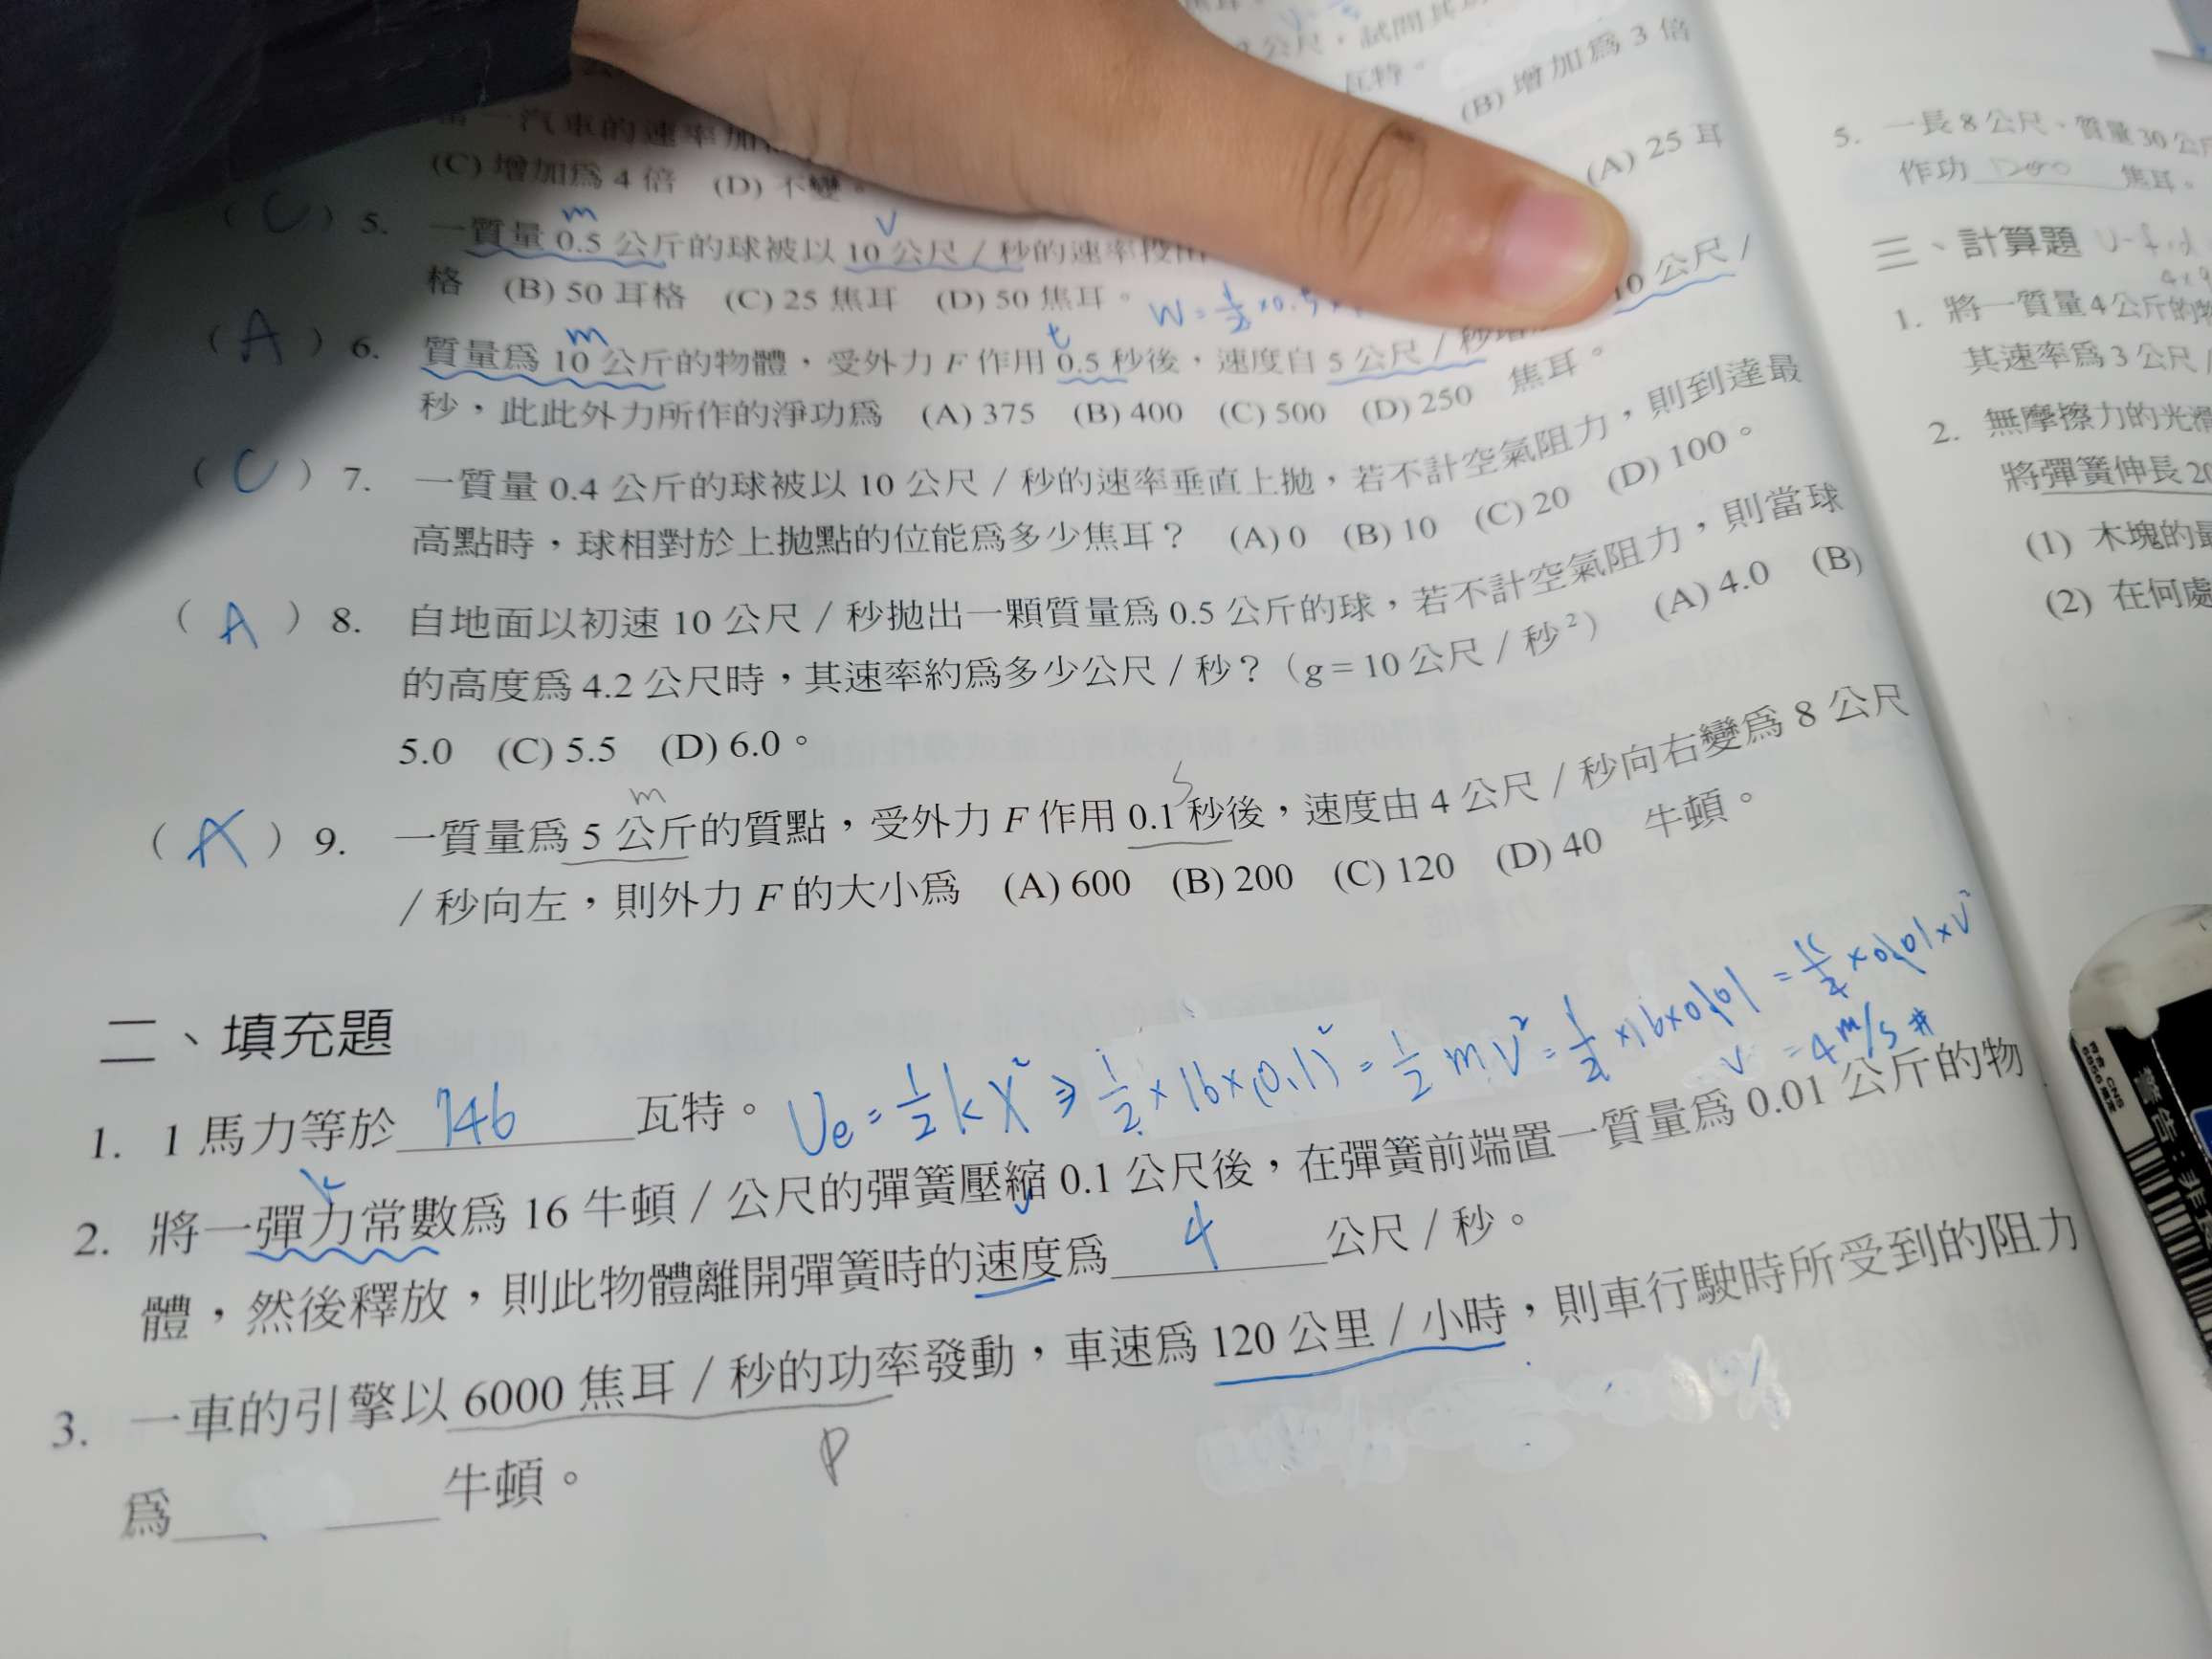 2公尺，試問其
瓦特。
(B) 增加為 3 倍
當一汽車的速率加
(C) 增加為 4 倍 (D) 不變。
(A) 25 耳
m v
( C ) 5. 一質量 0.5 公斤的球被以 10 公尺／秒的速率投出
格 (B) 50 耳格 (C) 25 焦耳 (D) 50 焦耳。 W = 1/2 × 0.5
m t
( A ) 6. 質量為 10 公斤的物體，受外力 F 作用 0.5 秒後，速度自 5 公尺／秒增 10 公尺／
秒，此此外力所作的淨功為 (A) 375 (B) 400 (C) 500 (D) 250 焦耳。
( C ) 7. 一質量 0.4 公斤的球被以 10 公尺／秒的速率垂直上拋，若不計空氣阻力，則到達最
高點時，球相對於上拋點的位能為多少焦耳？ (A) 0 (B) 10 (C) 20 (D) 100。
( A ) 8. 自地面以初速 10 公尺／秒拋出一顆質量為 0.5 公斤的球，若不計空氣阻力，則當球
的高度為 4.2 公尺時，其速率約為多少公尺／秒？（g = 10 公尺／秒²） (A) 4.0 (B)
5.0 (C) 5.5 (D) 6.0。
m s
( A ) 9. 一質量為 5 公斤的質點，受外力 F 作用 0.1 秒後，速度由 4 公尺／秒向右變為 8 公尺
／秒向左，則外力 F 的大小為 (A) 600 (B) 200 (C) 120 (D) 40 牛頓。
二、填充題
Ue = 1/2 kx² ⇒ 1/2 × 16 × (0.1)² = 1/2 mv² = 1/2 × 16 × 0.01 = 1/2 × 0.01 × v²
v = 4 m/s #
1. 1 馬力等於 746 瓦特。
2. 將一彈力常數為 16 牛頓／公尺的彈簧壓縮 0.1 公尺後，在彈簧前端置一質量為 0.01 公斤的物
體，然後釋放，則此物體離開彈簧時的速度為 4 公尺／秒。
3. 一車的引擎以 6000 焦耳／秒的功率發動，車速為 120 公里／小時，則車行駛時所受到的阻力
P
為 牛頓。
5. 一長 8 公尺、質量 30 公斤
作功 焦耳。
三、計算題
1. 將一質量 4 公斤的物
其速率為 3 公尺／
2. 無摩擦力的光滑
將彈簧伸長 20
(1) 木塊的最
(2) 在何處
警告：非